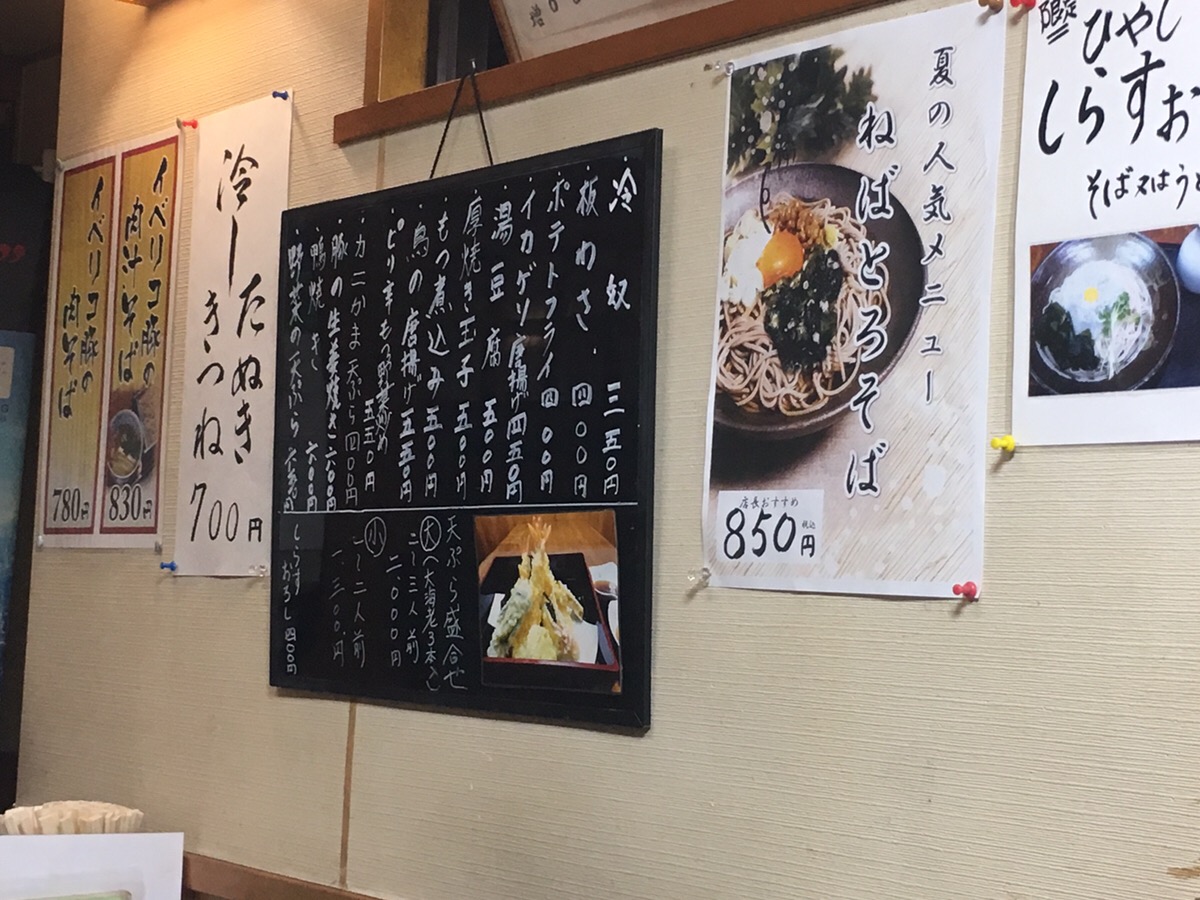 夏の人気メニュー
ねばとろそば
店長おすすめ
850円
税込
限定
ひやし
しらすお
そば又はう
・冷奴 三五〇円
・板わさ 四〇〇円
・ポテトフライ 四〇〇円
・イカゲソ唐揚げ 四五〇円
・湯豆腐 五〇〇円
・厚焼き玉子 五五〇円
・もつ煮込み 五五〇円
・鳥の唐揚げ 五五〇円
・ピリ辛もつ 五五〇円
・カニかま天ぷら 四〇〇円
・豚の生姜焼き 六〇〇円
・鴨焼き 六〇〇円
・野菜の天ぷら
天ぷら盛合せ
大(大海老3本
二〜三人前
二、〇〇〇円
小
二人前
一、三〇〇円
しらす
おろし 四〇〇円
冷したぬき
きつね
700円
イベリコ豚の
肉汁そば
830円
イベリコ豚の
肉そば
780円